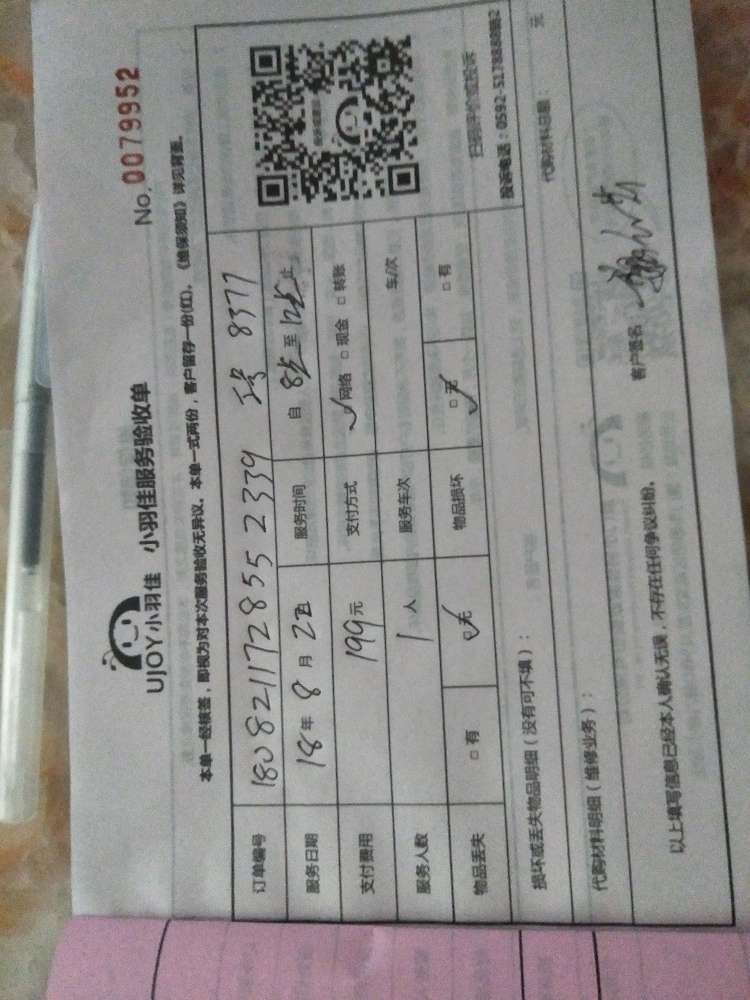 No. 0079952
UJOY小羽佳 小羽佳服务验收单
本单一经核签，即视为对本次服务验收无异议。本单一式两份，客户留存一份(红)。《维保须知》详见背面。
订单编号 1808211728552339 8377
服务日期 18年8月25 服务时间 自 8点 至 12点 止
支付费用 199元 支付方式 ✓网络 □现金 □转账
服务人数 1人 服务车次 车/次
物品丢失 □有 ☑无 物品损坏 ☑无 □有
扫码评价或投诉
投诉电话：0592-5178888转2
损坏或丢失物品明细（没有可不填）：
代购材料明细（维修业务）： 代购材料总额： 元
以上填写信息已经本人确认无误，不存在任何争议纠纷。 客户签名：